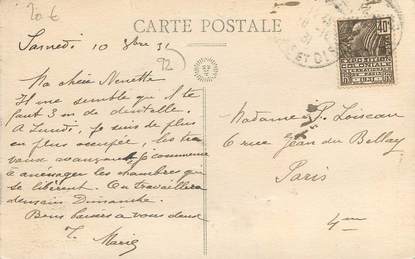 20 €
CARTE POSTALE
Samedi 10 8bre 31
92
Ma chère Nenette
Il me semble que Mte
faut 3 m de dentelle.
A Lundi, je suis de plus
en plus occupée, les tra
vaux avançant je commence
à aménager les chambres qui
se libèrent. On travaillera
demain Dimanche.
Bons baisers à vous deux
Marie
Madame P. Loiseau
6 rue Jean du Bellay
Paris
4em
40c
EXPOSITION
COLONIALE
PARIS
1931
ET OIS